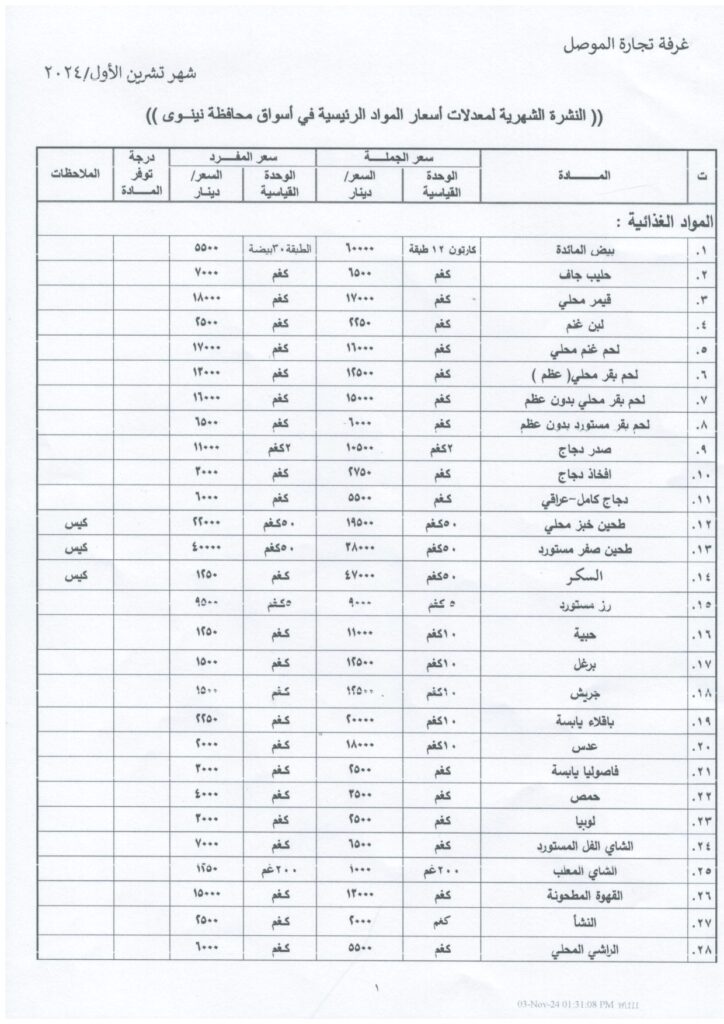 غرفة تجارة الموصل
شهر تشرين الأول/٢٠٢٤
(( النشرة الشهرية لمعدلات أسعار المواد الرئيسية في أسواق محافظة نينـوى ))
ت المـــــادة سعر الجملـــة سعر المفـــرد درجة توفر المــادة الملاحظات
الوحدة القياسية السعر/ دينار الوحدة القياسية السعر/ دينار
المواد الغذائية :
١. بيض المائدة كارتون ١٢ طبقة ٦٠٠٠٠ الطبقة ٣٠بيضة ٥٥٠٠
٢. حليب جاف كغم ٦٥٠٠ كغم ٧٠٠٠
٣. قيمر محلي كغم ١٧٠٠٠ كغم ١٨٠٠٠
٤. لبن غنم كغم ٢٢٥٠ كغم ٢٥٠٠
٥. لحم غنم محلي كغم ١٦٠٠٠ كغم ١٧٠٠٠
٦. لحم بقر محلي( عظم ) كغم ١٢٥٠٠ كغم ١٣٠٠٠
٧. لحم بقر محلي بدون عظم كغم ١٥٠٠٠ كغم ١٦٠٠٠
٨. لحم بقر مستورد بدون عظم كغم ٦٠٠٠ كغم ٦٥٠٠
٩. صدر دجاج ٢كغم ١٠٥٠٠ ٢كغم ١١٠٠٠
١٠. افخاذ دجاج كغم ٢٧٥٠ كغم ٣٠٠٠
١١. دجاج كامل-عراقي كغم ٥٥٠٠ كغم ٦٠٠٠
١٢. طحين خبز محلي ٥٠كغم ١٩٥٠٠ ٥٠كغم ٢٢٠٠٠ كيس
١٣. طحين صفر مستورد ٥٠كغم ٣٨٠٠٠ ٥٠كغم ٤٠٠٠٠ كيس
١٤. السكر ٥٠كغم ٤٧٠٠٠ كغم ١٢٥٠ كيس
١٥. رز مستورد ٥ كغم ٩٠٠٠ ٥كغم ٩٥٠٠
١٦. حبية ١٠كغم ١١٠٠٠ كغم ١٢٥٠
١٧. برغل ١٠كغم ١٢٥٠٠ كغم ١٥٠٠
١٨. جريش ١٠كغم ١٢٥٠٠ كغم ١٥٠٠
١٩. باقلاء يابسة ١٠كغم ٢٠٠٠٠ كغم ٢٢٥٠
٢٠. عدس ١٠كغم ١٨٠٠٠ كغم ٢٠٠٠
٢١. فاصوليا يابسة كغم ٢٥٠٠ كغم ٣٠٠٠
٢٢. حمص كغم ٣٥٠٠ كغم ٤٠٠٠
٢٣. لوبيا كغم ٢٥٠٠ كغم ٣٠٠٠
٢٤. الشاي الفل المستورد كغم ٦٥٠٠ كغم ٧٠٠٠
٢٥. الشاي المعلب ٢٠٠غم ١٠٠٠ ٢٠٠غم ١٢٥٠
٢٦. القهوة المطحونة كغم ١٣٠٠٠ كغم ١٥٠٠٠
٢٧. النشأ كغم ٢٠٠٠ كغم ٢٥٠٠
٢٨. الراشي المحلي كغم ٥٥٠٠ كغم ٦٠٠٠
١
03-Nov-24 01:31:08 PM